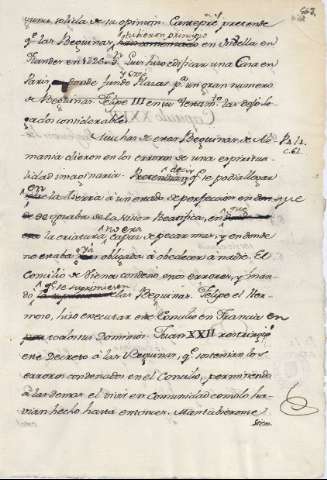 que solida de su opinion. Cantepré pretende
q.e las Beguinas tubieron principio en Nivella en
Flandes en 1226. Sn. Luis hizo edificar una Casa en
Paris donde fundó Plazas p.a un gran numero
de Beguinas. Felipe III en su Testam.to las dejó le-
gados considerables.
Muchas de esas Beguinas de Ale-
mania dieron en los errores de una espiritua-
lidad imaginaria. Pretendian q.e se podia llegar
en la tierra á un estado de perfeccion en donde
de la Vision Beatifica, en
la criatura no era capaz de pecar mas, y en donde
no estaba yá obligada á obedecer á nadie. El
Concilio de Viena condenó esos errores, y man-
dó q.e se suprimiesen las Beguinas. Felipe el Her-
moso, hizo executar este Concilio en Francia en
todos sus Dominios. Juan XXII restringió
este Decreto á las Beguinas, q.e sostenian los
errores condenados en el Concilio, permitiendo
á las demas el vivir en Comunidad como lo ha-
vian hecho hasta entonces. Mantubieronse